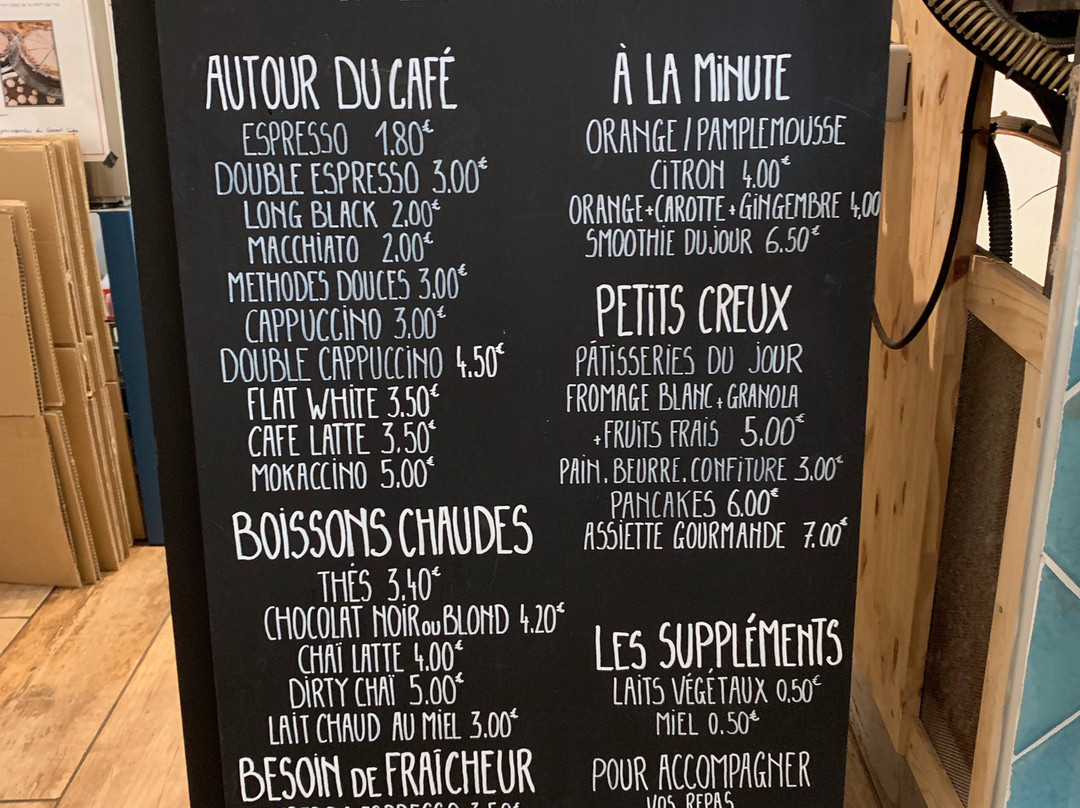 AUTOUR DU CAFÉ
ESPRESSO 1.80€
DOUBLE ESPRESSO 3.00€
LONG BLACK 2.00€
MACCHIATO 2.00€
METHODES DOUCES 3.00€
CAPPUCCINO 3.00€
DOUBLE CAPPUCCINO 4.50€
FLAT WHITE 3.50€
CAFE LATTE 3.50€
MOKACCINO 5.00€
BOISSONS CHAUDES
THÉS 3.40€
CHOCOLAT NOIR ou BLOND 4.20€
CHAÏ LATTE 4.00€
DIRTY CHAÏ 5.00€
LAIT CHAUD AU MIEL 3.00€
BESOIN DE FRAÎCHEUR
ESPRESSO 3.50€
À LA MINUTE
ORANGE / PAMPLEMOUSSE
CITRON 4.00€
ORANGE+CAROTTE+GINGEMBRE 4,00
SMOOTHIE DU JOUR 6.50€
PETITS CREUX
PÂTISSERIES DU JOUR
FROMAGE BLANC + GRANOLA
+FRUITS FRAIS 5.00€
PAIN. BEURRE. CONFITURE 3.00€
PANCAKES 6.00€
ASSIETTE GOURMANDE 7.00€
LES SUPPLÉMENTS
LAITS VÉGÉTAUX 0,50€
MIEL 0.50€
POUR ACCOMPAGNER
VOS REPAS